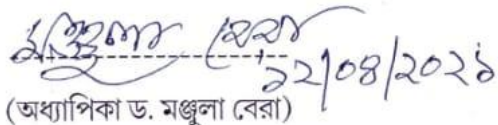 মঞ্জুলা বেরা
১২/০৪/২০২১
(অধ্যাপিকা ড. মঞ্জুলা বেরা)